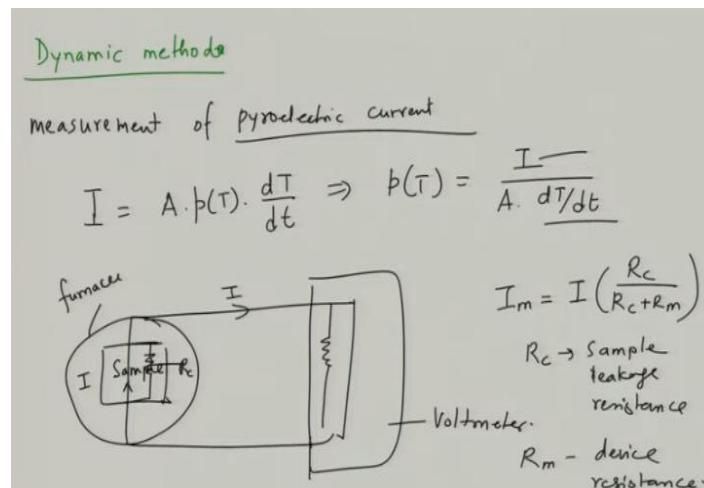 Dynamic methods
measurement of pyroelectric current
I = A.p(T). dT/dt ⇒ p(T) = I / A. dT/dt
furnace
I
I
Sample
Rc
Voltmeter.
Im = I (Rc / Rc+Rm)
Rc → Sample
leakage
resistance
Rm - device
resistance.